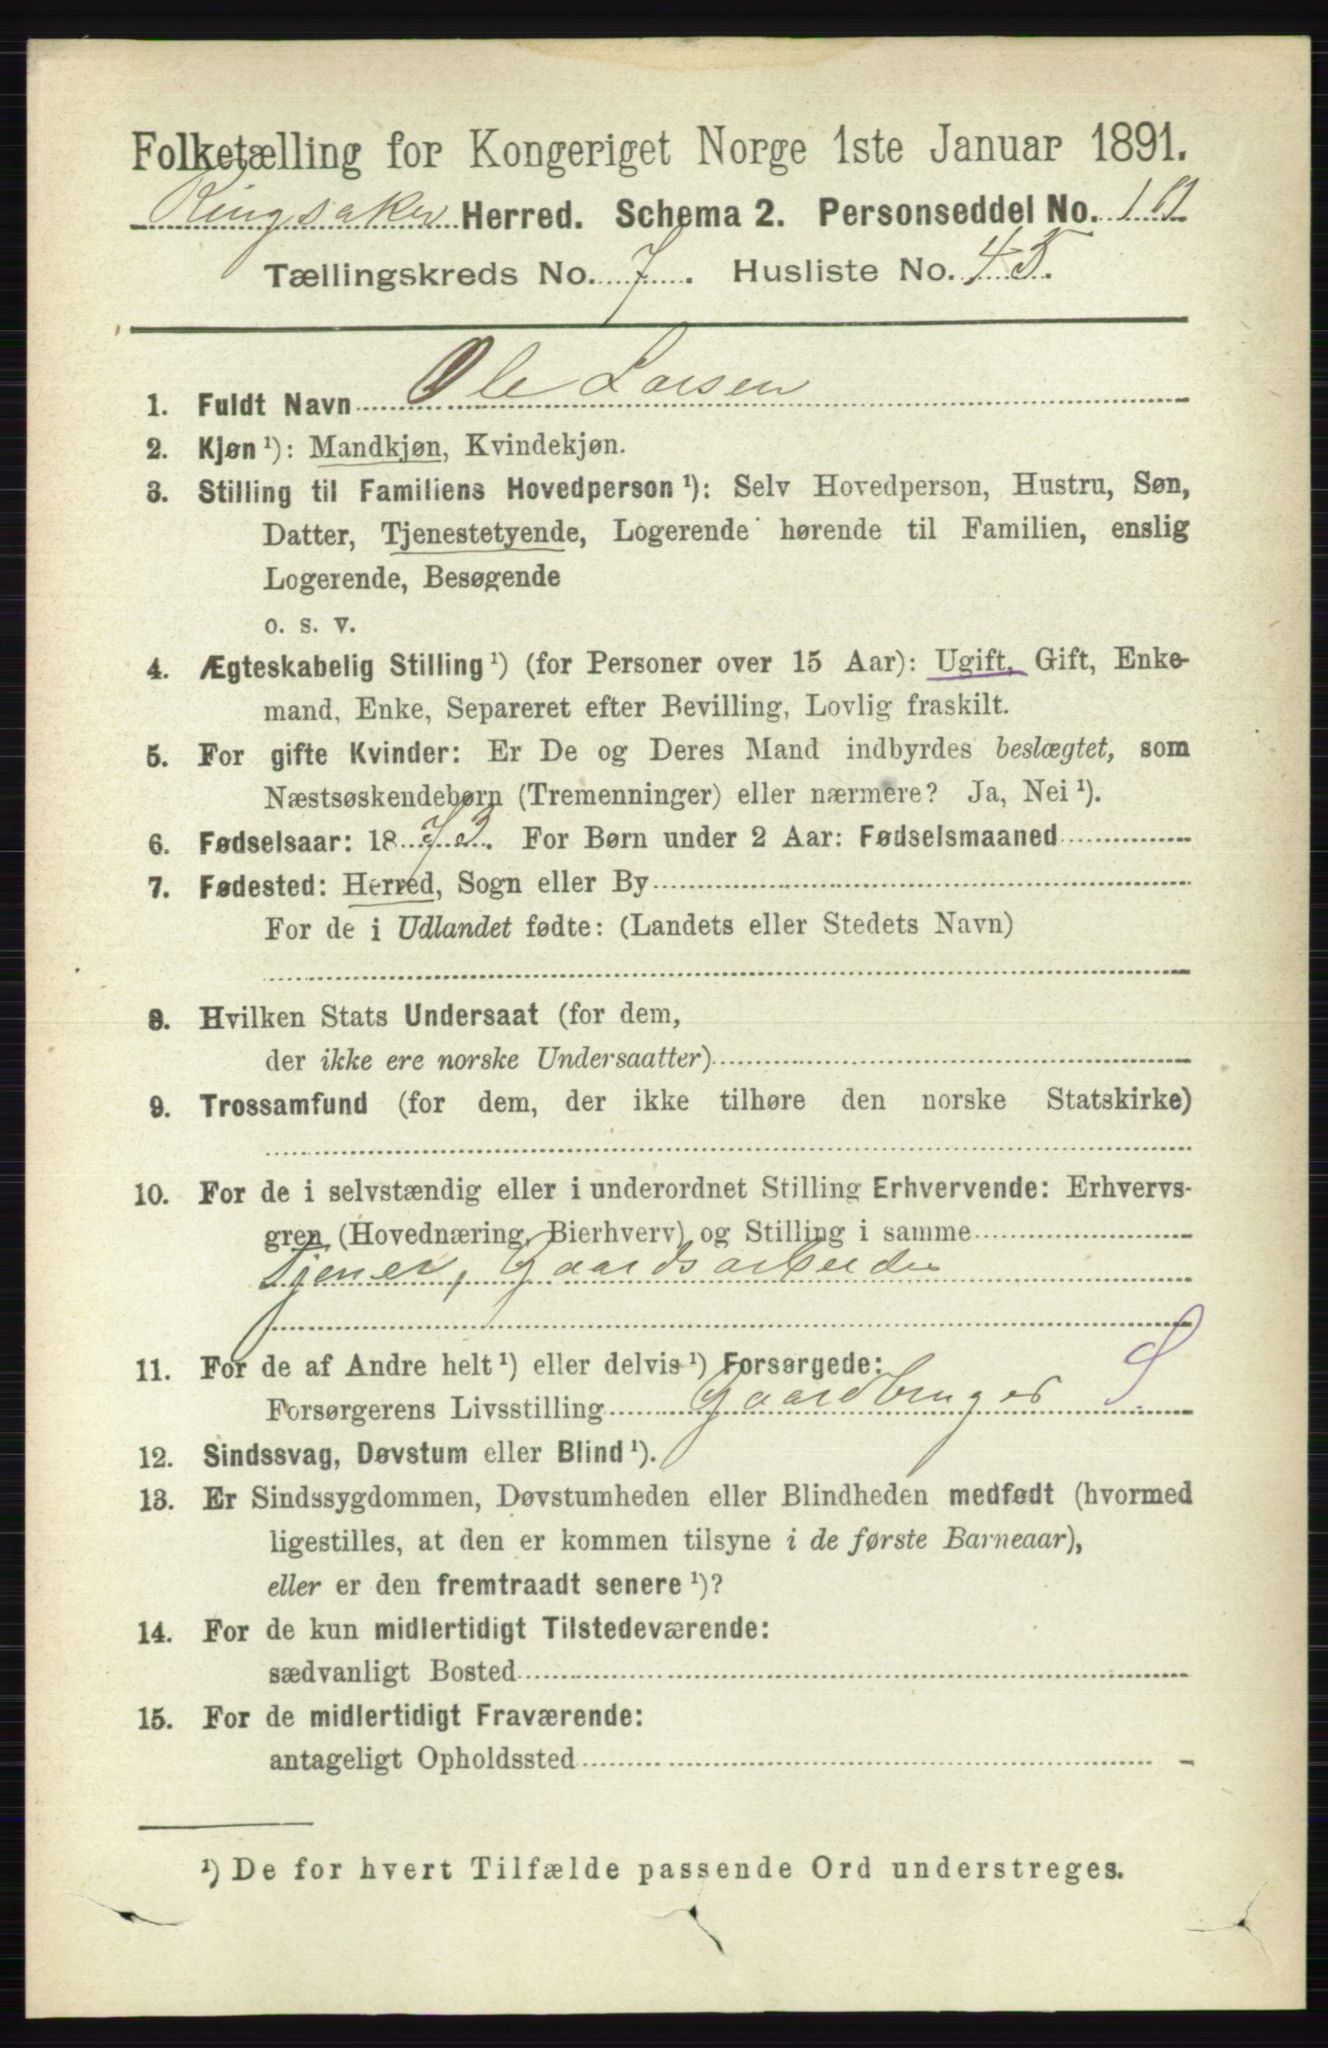 Folketælling for Kongeriget Norge 1ste Januar 1891.
Ringsaker Herred. Schema 2. Personseddel No. 10
Tællingskreds No. 7. Husliste No. 45.
1. Fuldt Navn Ole Larsen
2. Kjøn ¹): Mandkjøn, Kvindekjøn.
3. Stilling til Familiens Hovedperson ¹): Selv Hovedperson, Hustru, Søn,
Datter, Tjenestetyende, Logerende hørende til Familien, enslig
Logerende, Besøgende
o. s. v.
4. Ægteskabelig Stilling ¹) (for Personer over 15 Aar): Ugift, Gift, Enke-
mand, Enke, Separeret efter Bevilling, Lovlig fraskilt.
5. For gifte Kvinder: Er De og Deres Mand indbyrdes beslægtet, som
Næstsøskendebørn (Tremenninger) eller nærmere? Ja, Nei ¹).
6. Fødselsaar: 1873. For Børn under 2 Aar: Fødselsmaaned
7. Fødested: Herred, Sogn eller By
For de i Udlandet fødte: (Landets eller Stedets Navn)
8. Hvilken Stats Undersaat (for dem,
der ikke ere norske Undersaatter)
9. Trossamfund (for dem, der ikke tilhøre den norske Statskirke)
10. For de i selvstændig eller i underordnet Stilling Erhvervende: Erhvervs-
gren (Hovednæring, Bierhverv) og Stilling i samme
Tjener, Gaardsarbeider
11. For de af Andre helt ¹) eller delvis ¹) Forsørgede:
Forsørgerens Livsstilling Gaardbruger S
12. Sindssvag, Døvstum eller Blind ¹).
13. Er Sindssygdommen, Døvstumheden eller Blindheden medfødt (hvormed
ligestilles, at den er kommen tilsyne i de første Barneaar),
eller er den fremtraadt senere ¹)?
14. For de kun midlertidigt Tilstedeværende:
sædvanligt Bosted
15. For de midlertidigt Fraværende:
antageligt Opholdssted
¹) De for hvert Tilfælde passende Ord understreges.